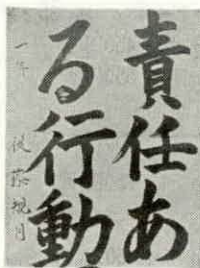 責任あ
る行動
一年 後藤